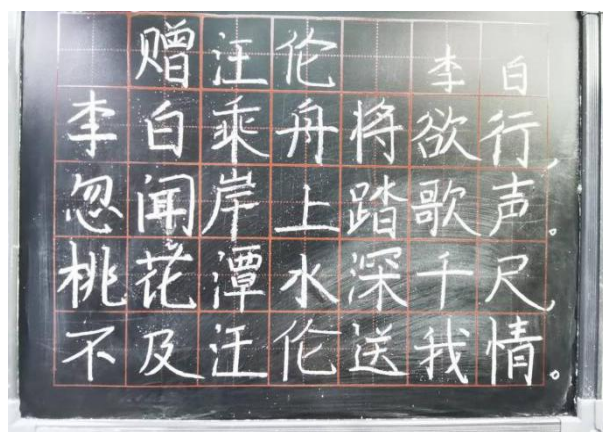 赠汪伦 李白
李白乘舟将欲行，
忽闻岸上踏歌声。
桃花潭水深千尺，
不及汪伦送我情。